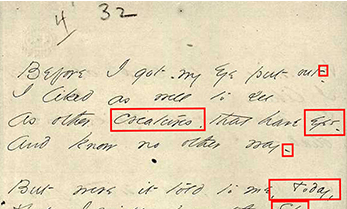 4 32
Before I got my Eye put out -
I liked as well to see
As other Creatures, that have Eyes
And know no other way -
But were it told to me, Today,